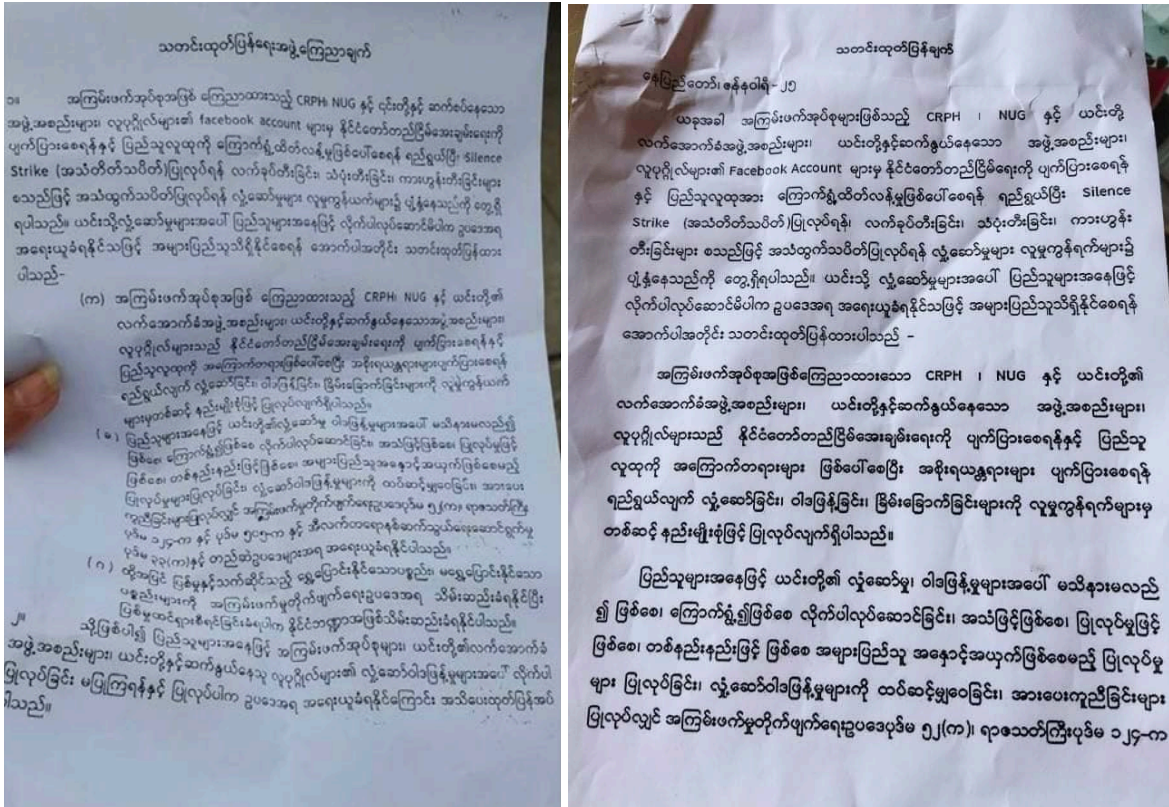 သတင်းထုတ်ပြန်ရေးအဖွဲ့ကြေညာချက်
၁။ အကြမ်းဖက်အုပ်စုအဖြစ် ကြေညာထားသည့် CRPH၊ NUG နှင့် ၎င်းတို့နှင့် ဆက်စပ်နေသော
အဖွဲ့အစည်းများ၊ လူပုဂ္ဂိုလ်များ၏ facebook account များမှ နိုင်ငံတော်တည်ငြိမ်အေးချမ်းရေးကို
ပျက်ပြားစေရန်နှင့် ပြည်သူလူထုကို ကြောက်ရွံ့ထိတ်လန့်မှုဖြစ်ပေါ်စေရန် ရည်ရွယ်ပြီး Silence
Strike (အသံတိတ်သပိတ်)ပြုလုပ်ရန် လက်ခုပ်တီးခြင်း၊ သံပုံးတီးခြင်း၊ ကားဟွန်းတီးခြင်းများ
စသည်ဖြင့် အသံထွက်သပိတ်ပြုလုပ်ရန် လှုံ့ဆော်မှုများ လူမှုကွန်ယက်များ၌ ပျံ့နှံ့နေသည်ကို တွေ့ရှိ
ရပါသည်။ ယင်းသို့လှုံ့ဆော်မှုများအပေါ် ပြည်သူများအနေဖြင့် လိုက်ပါလုပ်ဆောင်မိပါက ဥပဒေအရ
အရေးယူခံရနိုင်သဖြင့် အများပြည်သူသိရှိနိုင်စေရန် အောက်ပါအတိုင်း သတင်းထုတ်ပြန်ထား
ပါသည်-
(က) အကြမ်းဖက်အုပ်စုအဖြစ် ကြေညာထားသည့် CRPH၊ NUG နှင့် ယင်းတို့၏
လက်အောက်ခံအဖွဲ့အစည်းများ၊ ယင်းတို့နှင့်ဆက်နွယ်နေသောအဖွဲ့အစည်းများ၊
လူပုဂ္ဂိုလ်များသည် နိုင်ငံတော်တည်ငြိမ်အေးချမ်းရေးကို ပျက်ပြားစေရန်နှင့်
ပြည်သူလူထုကို အကြောက်တရားဖြစ်ပေါ်စေပြီး အစိုးရယန္တရားများပျက်ပြားစေရန်
ရည်ရွယ်လျက် လှုံ့ဆော်ခြင်း၊ ဝါဒဖြန့်ခြင်း၊ ခြိမ်းခြောက်ခြင်းများကို လူမှုကွန်ယက်
များမှတစ်ဆင့် နည်းမျိုးစုံဖြင့် ပြုလုပ်လျက်ရှိပါသည်။
(ခ) ပြည်သူများအနေဖြင့် ယင်းတို့၏လှုံ့ဆော်မှု ဝါဒဖြန့်မှုများအပေါ် မသိနားမလည်၍
ဖြစ်စေ၊ ကြောက်ရွံ့၍ဖြစ်စေ လိုက်ပါလုပ်ဆောင်ခြင်း၊ အသံဖြင့်ဖြစ်စေ၊ ပြုလုပ်မှုဖြင့်
ဖြစ်စေ၊ တစ်နည်းနည်းဖြင့်ဖြစ်စေ၊ အများပြည်သူအနှောင့်အယှက်ဖြစ်စေမည့်
ပြုလုပ်မှုများပြုလုပ်ခြင်း၊ လှုံ့ဆော်ဝါဒဖြန့်မှုများကို ထပ်ဆင့်မျှဝေခြင်း၊ အားပေး
ကူညီခြင်းများပြုလုပ်လျှင် အကြမ်းဖက်မှုတိုက်ဖျက်ရေးဥပဒေပုဒ်မ ၅၂(က)၊ ရာဇသတ်ကြီး
ပုဒ်မ ၁၂၄-က နှင့် ပုဒ်မ ၅၀၅-က နှင့် အီလက်ထရောနစ်ဆက်သွယ်ရေးဆောင်ရွက်မှု
ပုဒ်မ ၃၃(က)နှင့် တည်ဆဲဥပဒေများအရ အရေးယူခံရနိုင်ပါသည်။
(ဂ) ထို့အပြင် ပြစ်မှုနှင့်သက်ဆိုင်သည့် ရွှေ့ပြောင်းနိုင်သောပစ္စည်း၊ မရွှေ့ပြောင်းနိုင်သော
ပစ္စည်းများကို အကြမ်းဖက်မှုတိုက်ဖျက်ရေးဥပဒေအရ သိမ်းဆည်းခံရနိုင်ပြီး
ပြစ်မှုထင်ရှားစီရင်ခြင်းခံရပါက နိုင်ငံဘဏ္ဍာအဖြစ်သိမ်းဆည်းခံရနိုင်ပါသည်။
၂။ သို့ဖြစ်ပါ၍ ပြည်သူများအနေဖြင့် အကြမ်းဖက်အုပ်စုများ၊ ယင်းတို့၏လက်အောက်ခံ
အဖွဲ့အစည်းများ၊ ယင်းတို့နှင့်ဆက်နွယ်နေသူ လူပုဂ္ဂိုလ်များ၏ လှုံ့ဆော်ဝါဒဖြန့်မှုများအပေါ် လိုက်ပါ
ပြုလုပ်ခြင်း မပြုကြရန်နှင့် ပြုလုပ်ပါက ဥပဒေအရ အရေးယူခံရနိုင်ကြောင်း အသိပေးထုတ်ပြန်အပ်
ပါသည်။
သတင်းထုတ်ပြန်ချက်
နေပြည်တော်၊ ဇန်နဝါရီ - ၂၅
ယခုအခါ အကြမ်းဖက်အုပ်စုများဖြစ်သည့် CRPH ၊ NUG နှင့် ယင်းတို့
လက်အောက်ခံအဖွဲ့အစည်းများ၊ ယင်းတို့နှင့်ဆက်နွယ်နေသော အဖွဲ့အစည်းများ၊
လူပုဂ္ဂိုလ်များ၏ Facebook Account များမှ နိုင်ငံတော်တည်ငြိမ်ရေးကို ပျက်ပြားစေရန်
နှင့် ပြည်သူလူထုအား ကြောက်ရွံ့ထိတ်လန့်မှုဖြစ်ပေါ်စေရန် ရည်ရွယ်ပြီး Silence
Strike (အသံတိတ်သပိတ်)ပြုလုပ်ရန်၊ လက်ခုပ်တီးခြင်း၊ သံပုံးတီးခြင်း၊ ကားဟွန်း
တီးခြင်းများ စသည်ဖြင့် အသံထွက်သပိတ်ပြုလုပ်ရန် လှုံ့ဆော်မှုများ လူမှုကွန်ရက်များ၌
ပျံ့နှံ့နေသည်ကို တွေ့ရှိရပါသည်။ ယင်းသို့ လှုံ့ဆော်မှုများအပေါ် ပြည်သူများအနေဖြင့်
လိုက်ပါလုပ်ဆောင်မိပါက ဥပဒေအရ အရေးယူခံရနိုင်သဖြင့် အများပြည်သူသိရှိနိုင်စေရန်
အောက်ပါအတိုင်း သတင်းထုတ်ပြန်ထားပါသည် -
အကြမ်းဖက်အုပ်စုအဖြစ်ကြေညာထားသော CRPH ၊ NUG နှင့် ယင်းတို့၏
လက်အောက်ခံအဖွဲ့အစည်းများ၊ ယင်းတို့နှင့်ဆက်နွယ်နေသော အဖွဲ့အစည်းများ၊
လူပုဂ္ဂိုလ်များသည် နိုင်ငံတော်တည်ငြိမ်အေးချမ်းရေးကို ပျက်ပြားစေရန်နှင့် ပြည်သူ
လူထုကို အကြောက်တရားများ ဖြစ်ပေါ်စေပြီး အစိုးရယန္တရားများ ပျက်ပြားစေရန်
ရည်ရွယ်လျက် လှုံ့ဆော်ခြင်း၊ ဝါဒဖြန့်ခြင်း၊ ခြိမ်းခြောက်ခြင်းများကို လူမှုကွန်ရက်များမှ
တစ်ဆင့် နည်းမျိုးစုံဖြင့် ပြုလုပ်လျက်ရှိပါသည်။
ပြည်သူများအနေဖြင့် ယင်းတို့၏ လှုံ့ဆော်မှု၊ ဝါဒဖြန့်မှုများအပေါ် မသိနားမလည်
၍ ဖြစ်စေ၊ ကြောက်ရွံ့၍ဖြစ်စေ လိုက်ပါလုပ်ဆောင်ခြင်း၊ အသံဖြင့်ဖြစ်စေ၊ ပြုလုပ်မှုဖြင့်
ဖြစ်စေ၊ တစ်နည်းနည်းဖြင့် ဖြစ်စေ အများပြည်သူ အနှောင့်အယှက်ဖြစ်စေမည့် ပြုလုပ်မှု
များ ပြုလုပ်ခြင်း၊ လှုံ့ဆော်ဝါဒဖြန့်မှုများကို ထပ်ဆင့်မျှဝေခြင်း၊ အားပေးကူညီခြင်းများ
ပြုလုပ်လျှင် အကြမ်းဖက်မှုတိုက်ဖျက်ရေးဥပဒေပုဒ်မ ၅၂(က)၊ ရာဇသတ်ကြီးပုဒ်မ ၁၂၄-က